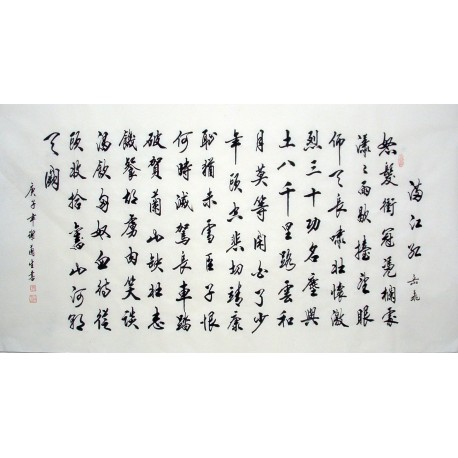 滿江紅 岳飛
怒髮衝冠憑欄處
瀟々雨歇擡望眼
仰天長嘯壯懷激
烈三十功名塵與
土八千里路雲和
月莫等閑白了少
年頭空悲切靖康
恥猶未雪臣子恨
何時滅駕長車踏
破賀蘭山缺壯志
饑餐胡虜肉笑談
渴飲匈奴血待從
頭收拾舊山河朝
天闕
庚子年 生書